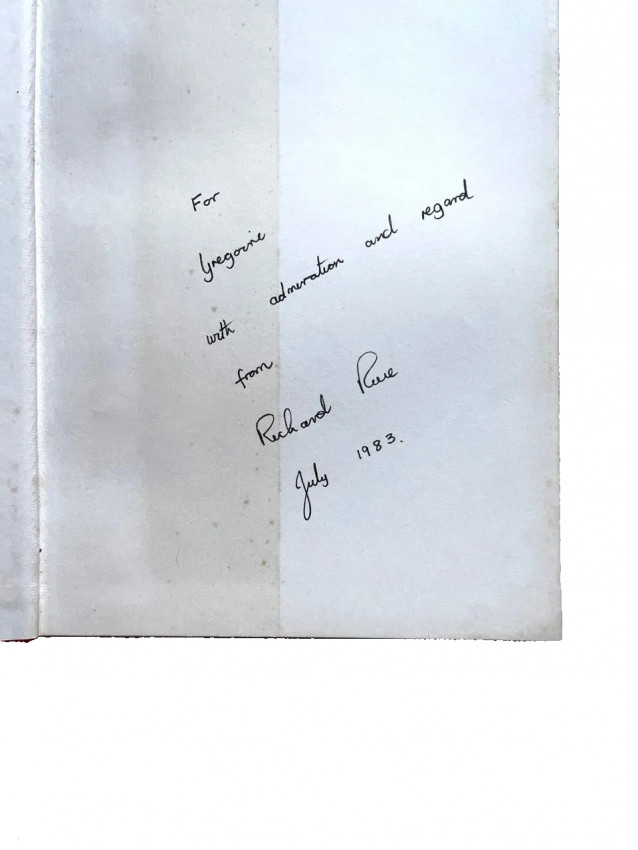 For
Gregoire
with admiration and regard
from
Richard
July 1983.